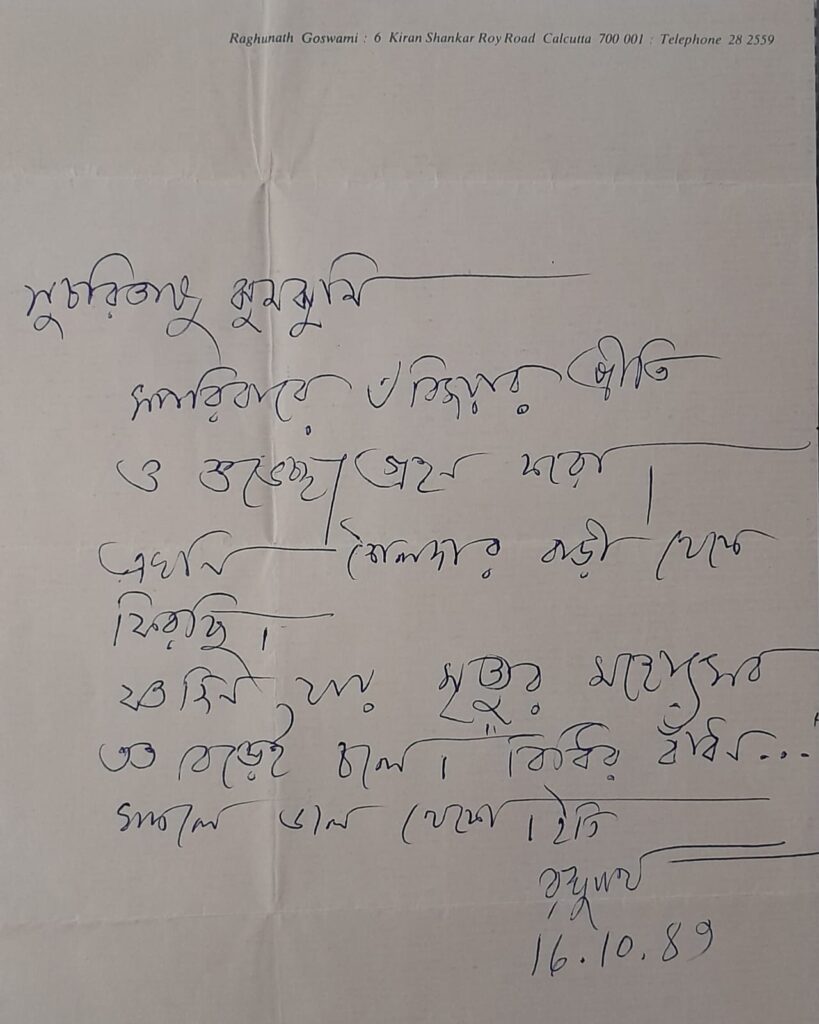 Raghunath Goswami : 6 Kiran Shankar Roy Road Calcutta 700 001 : Telephone 28 2559
সুচরিতাসু ঝুমঝুমি
সপরিবারে ৺বিজয়ার প্রীতি
ও শুভেচ্ছা গ্রহণ করো ।
এখনি শৈলদার বাড়ী থেকে
ফিরছি ।
যত দিন যায় মৃত্যুর মহোৎসব
তত বেড়েই চলে । বিধির বাঁধন...
সকলে ভাল থেকো । ইতি
রঘুনাথ
16.10.89